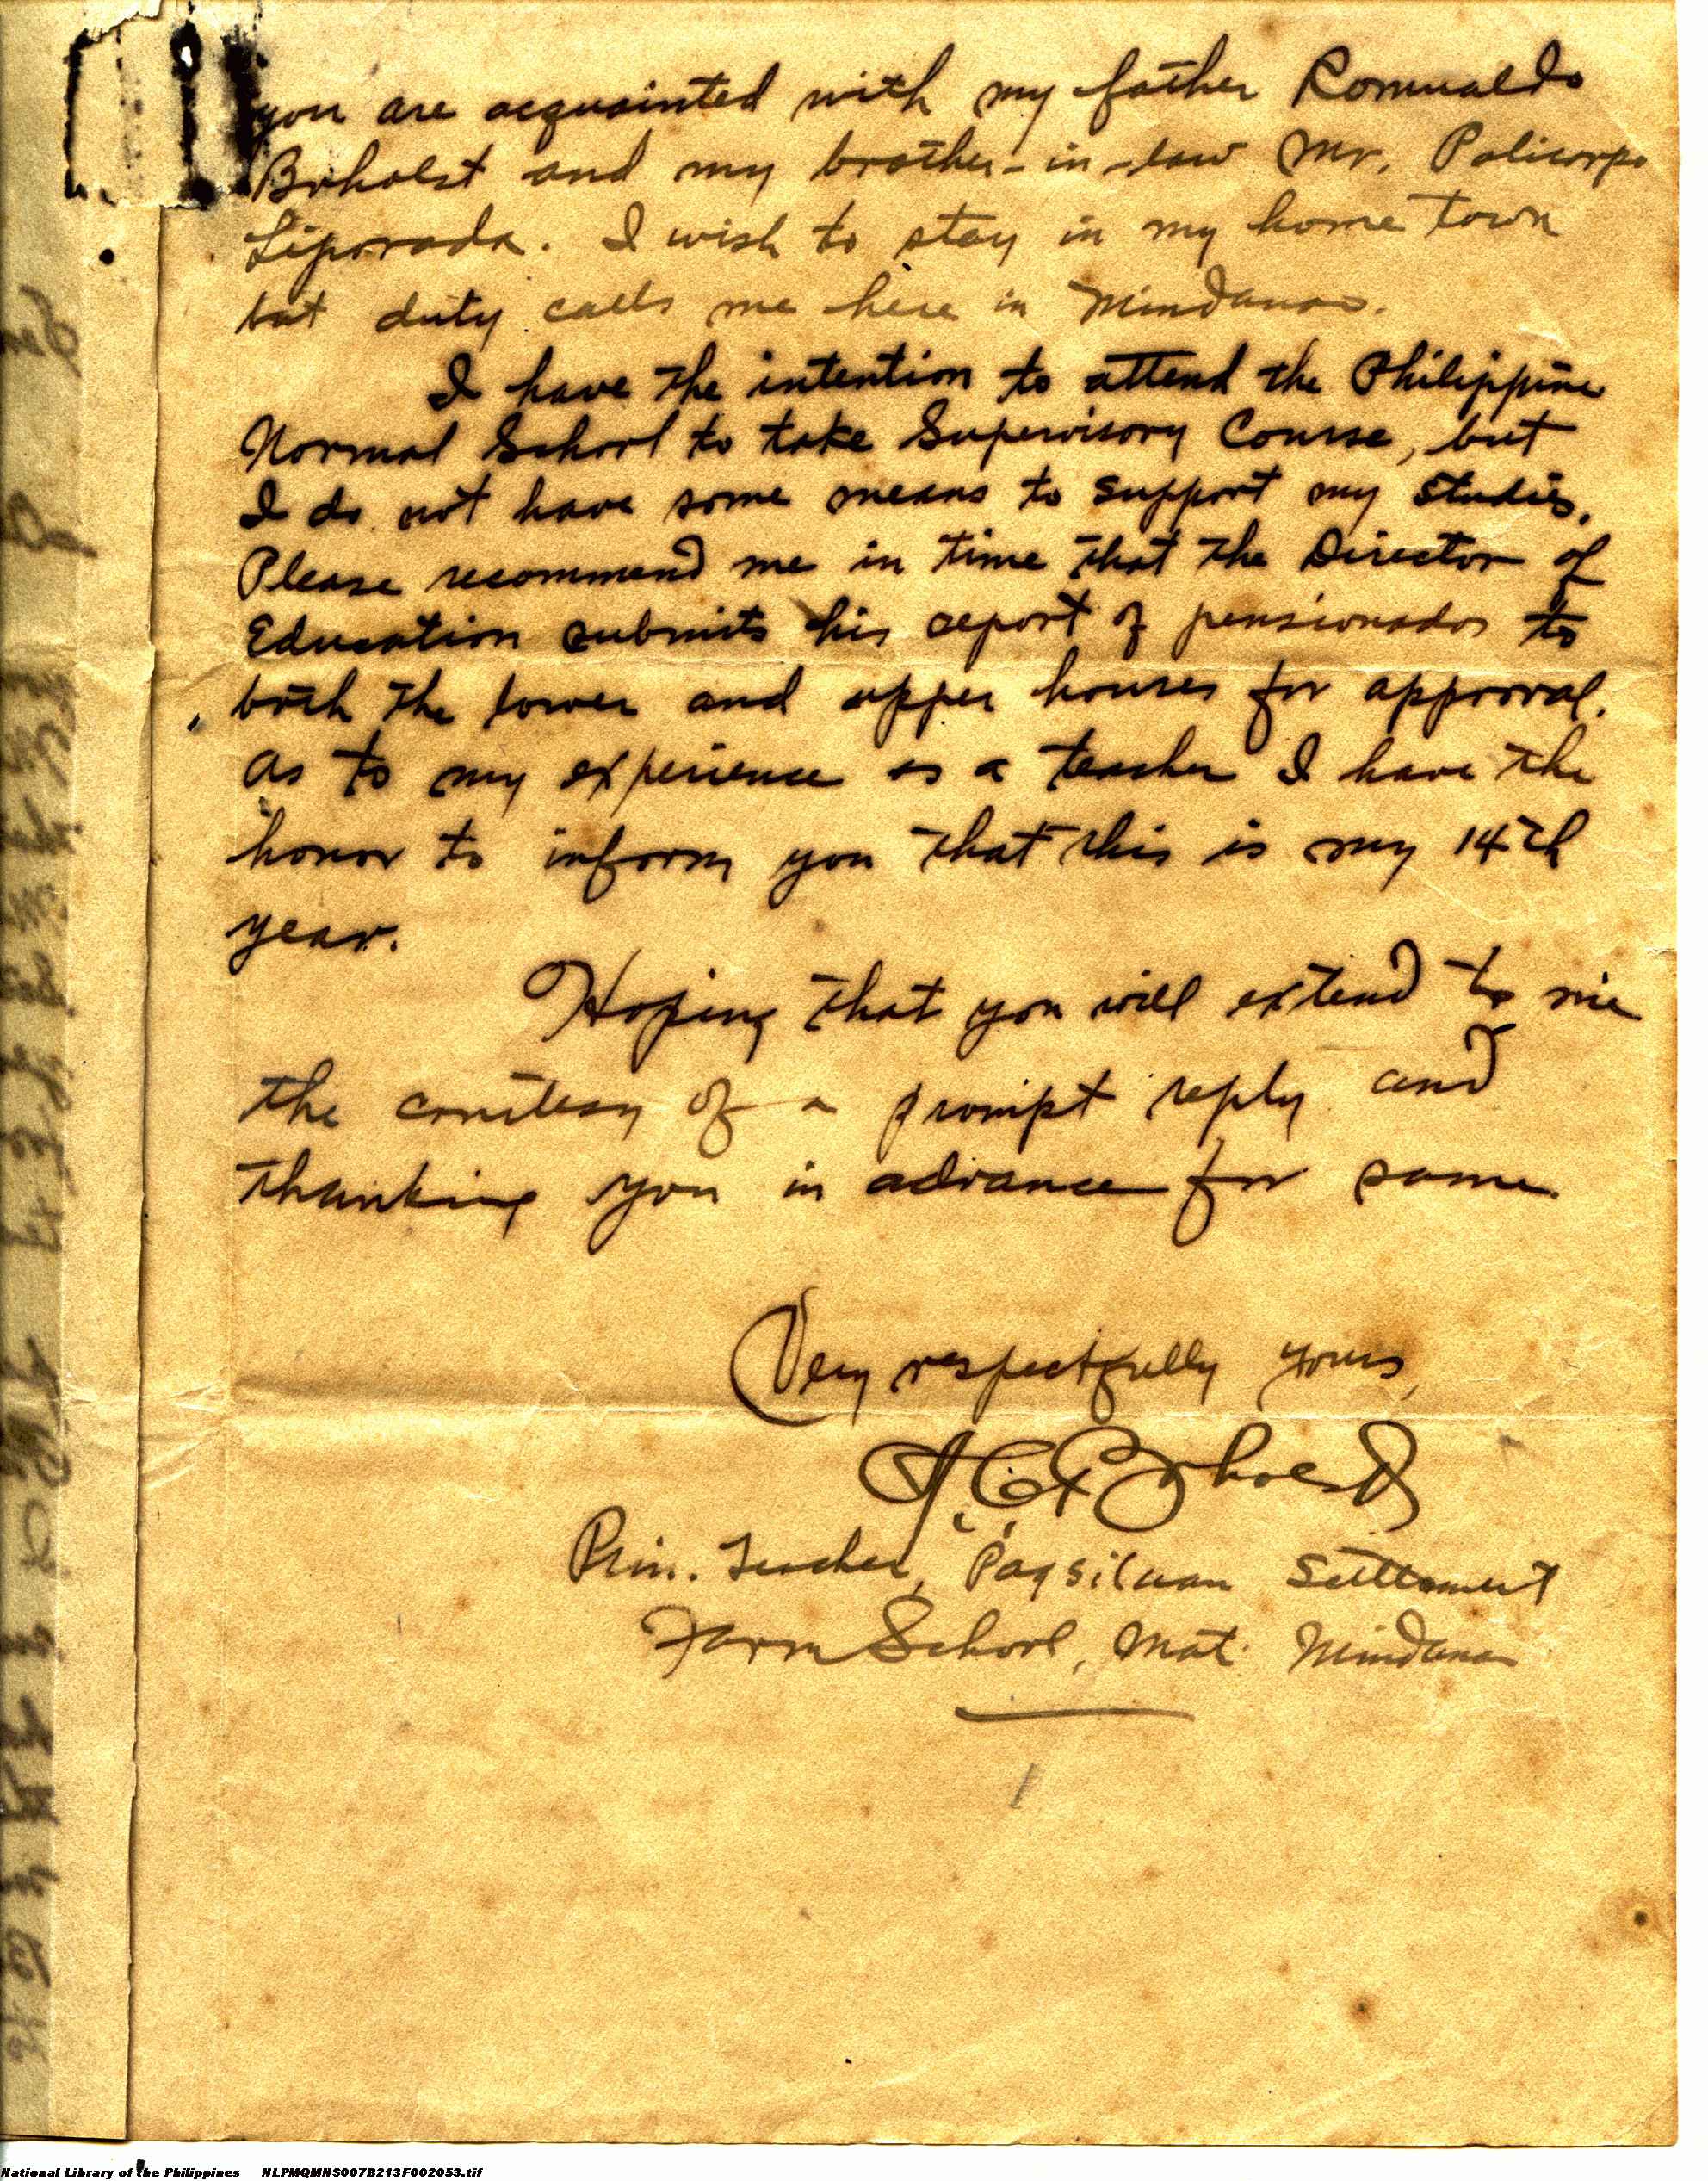 you are acquainted with my father Romualdo
Borholst and my brother-in-law Mr. Policorpo
Liporada. I wish to stay in my home town
but duty calls me here in Mindanao.
I have the intention to attend the Philippine
Normal School to take Supervisory Course, but
I do not have some means to support my studies.
Please recommend me in time that the Director of
Education submits his report of pensionados to
both the lower and upper houses for approval.
As to my experience as a teacher I have the
honor to inform you that this is my 14th
year.
Hoping that you will extend to me
the courtesy of a prompt reply and
thanking you in advance for same.
Very respectfully yours,
Prin. Teacher, Settlement
Farm School, Mati Mindanao
National Library of the Philippines NLPMQMNS007B213F002053.tif